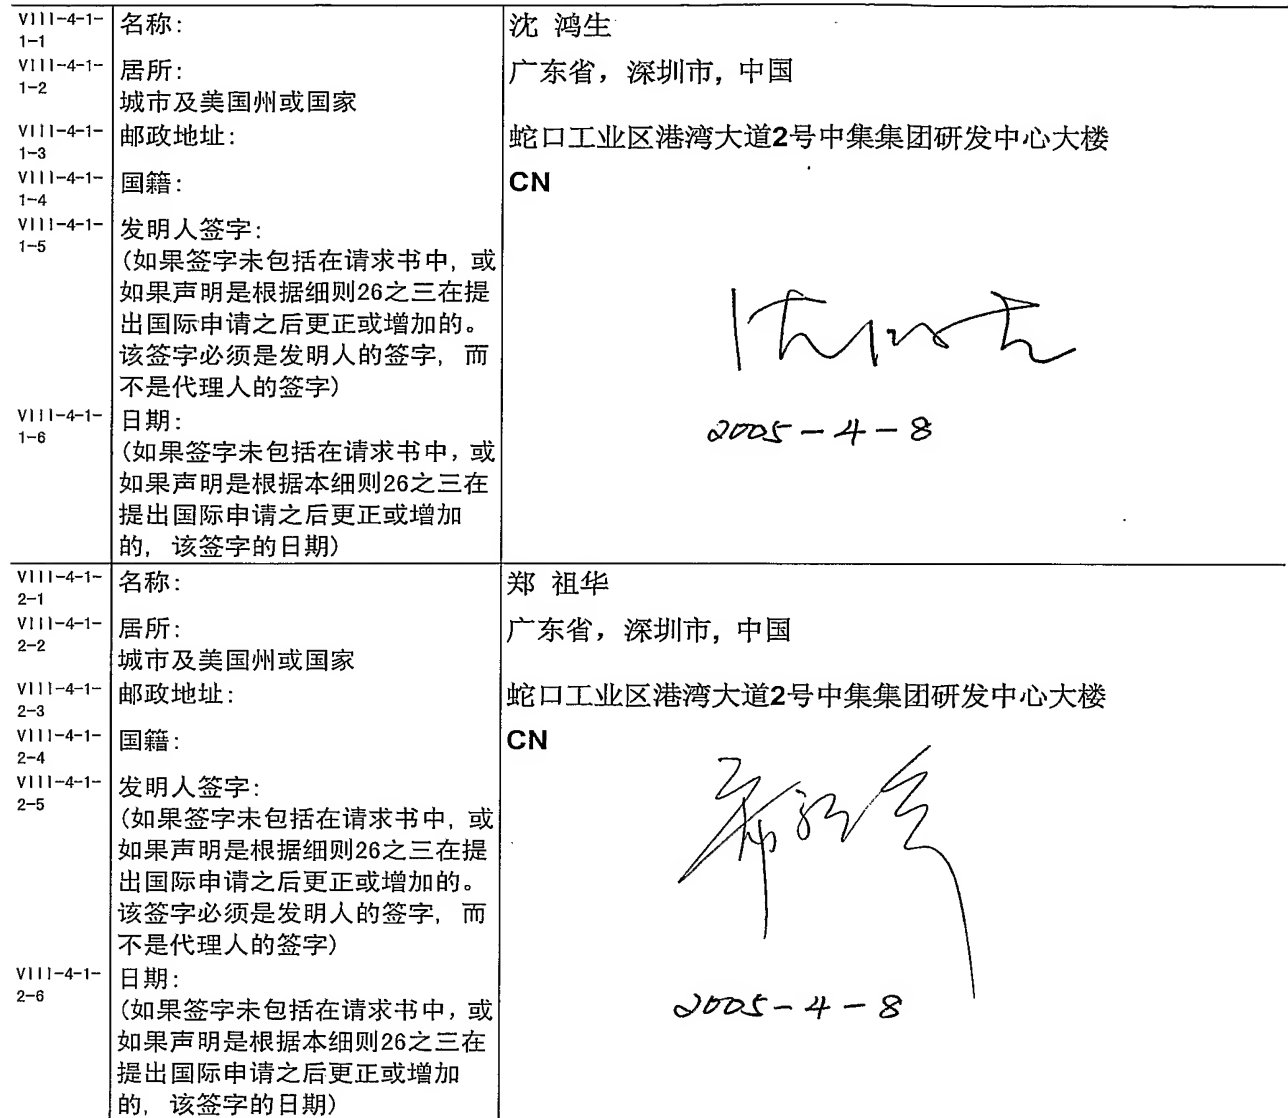 VIII-4-1-
1-1
名称:
沈 鸿生
VIII-4-1-
1-2
居所:
城市及美国州或国家
广东省，深圳市, 中国
VIII-4-1-
1-3
邮政地址:
蛇口工业区港湾大道2号中集集团研发中心大楼
VIII-4-1-
1-4
国籍:
CN
VIII-4-1-
1-5
发明人签字:
(如果签字未包括在请求书中, 或
如果声明是根据细则26之三在提
出国际申请之后更正或增加的。
该签字必须是发明人的签字, 而
不是代理人的签字)
VIII-4-1-
1-6
日期:
(如果签字未包括在请求书中，或
如果声明是根据本细则26之三在
提出国际申请之后更正或增加
的, 该签字的日期)
2005-4-8
VIII-4-1-
2-1
名称:
郑 祖华
VIII-4-1-
2-2
居所:
城市及美国州或国家
广东省，深圳市, 中国
VIII-4-1-
2-3
邮政地址:
蛇口工业区港湾大道2号中集集团研发中心大楼
VIII-4-1-
2-4
国籍:
CN
VIII-4-1-
2-5
发明人签字:
(如果签字未包括在请求书中, 或
如果声明是根据细则26之三在提
出国际申请之后更正或增加的。
该签字必须是发明人的签字, 而
不是代理人的签字)
VIII-4-1-
2-6
日期:
(如果签字未包括在请求书中，或
如果声明是根据本细则26之三在
提出国际申请之后更正或增加
的, 该签字的日期)
2005-4-8